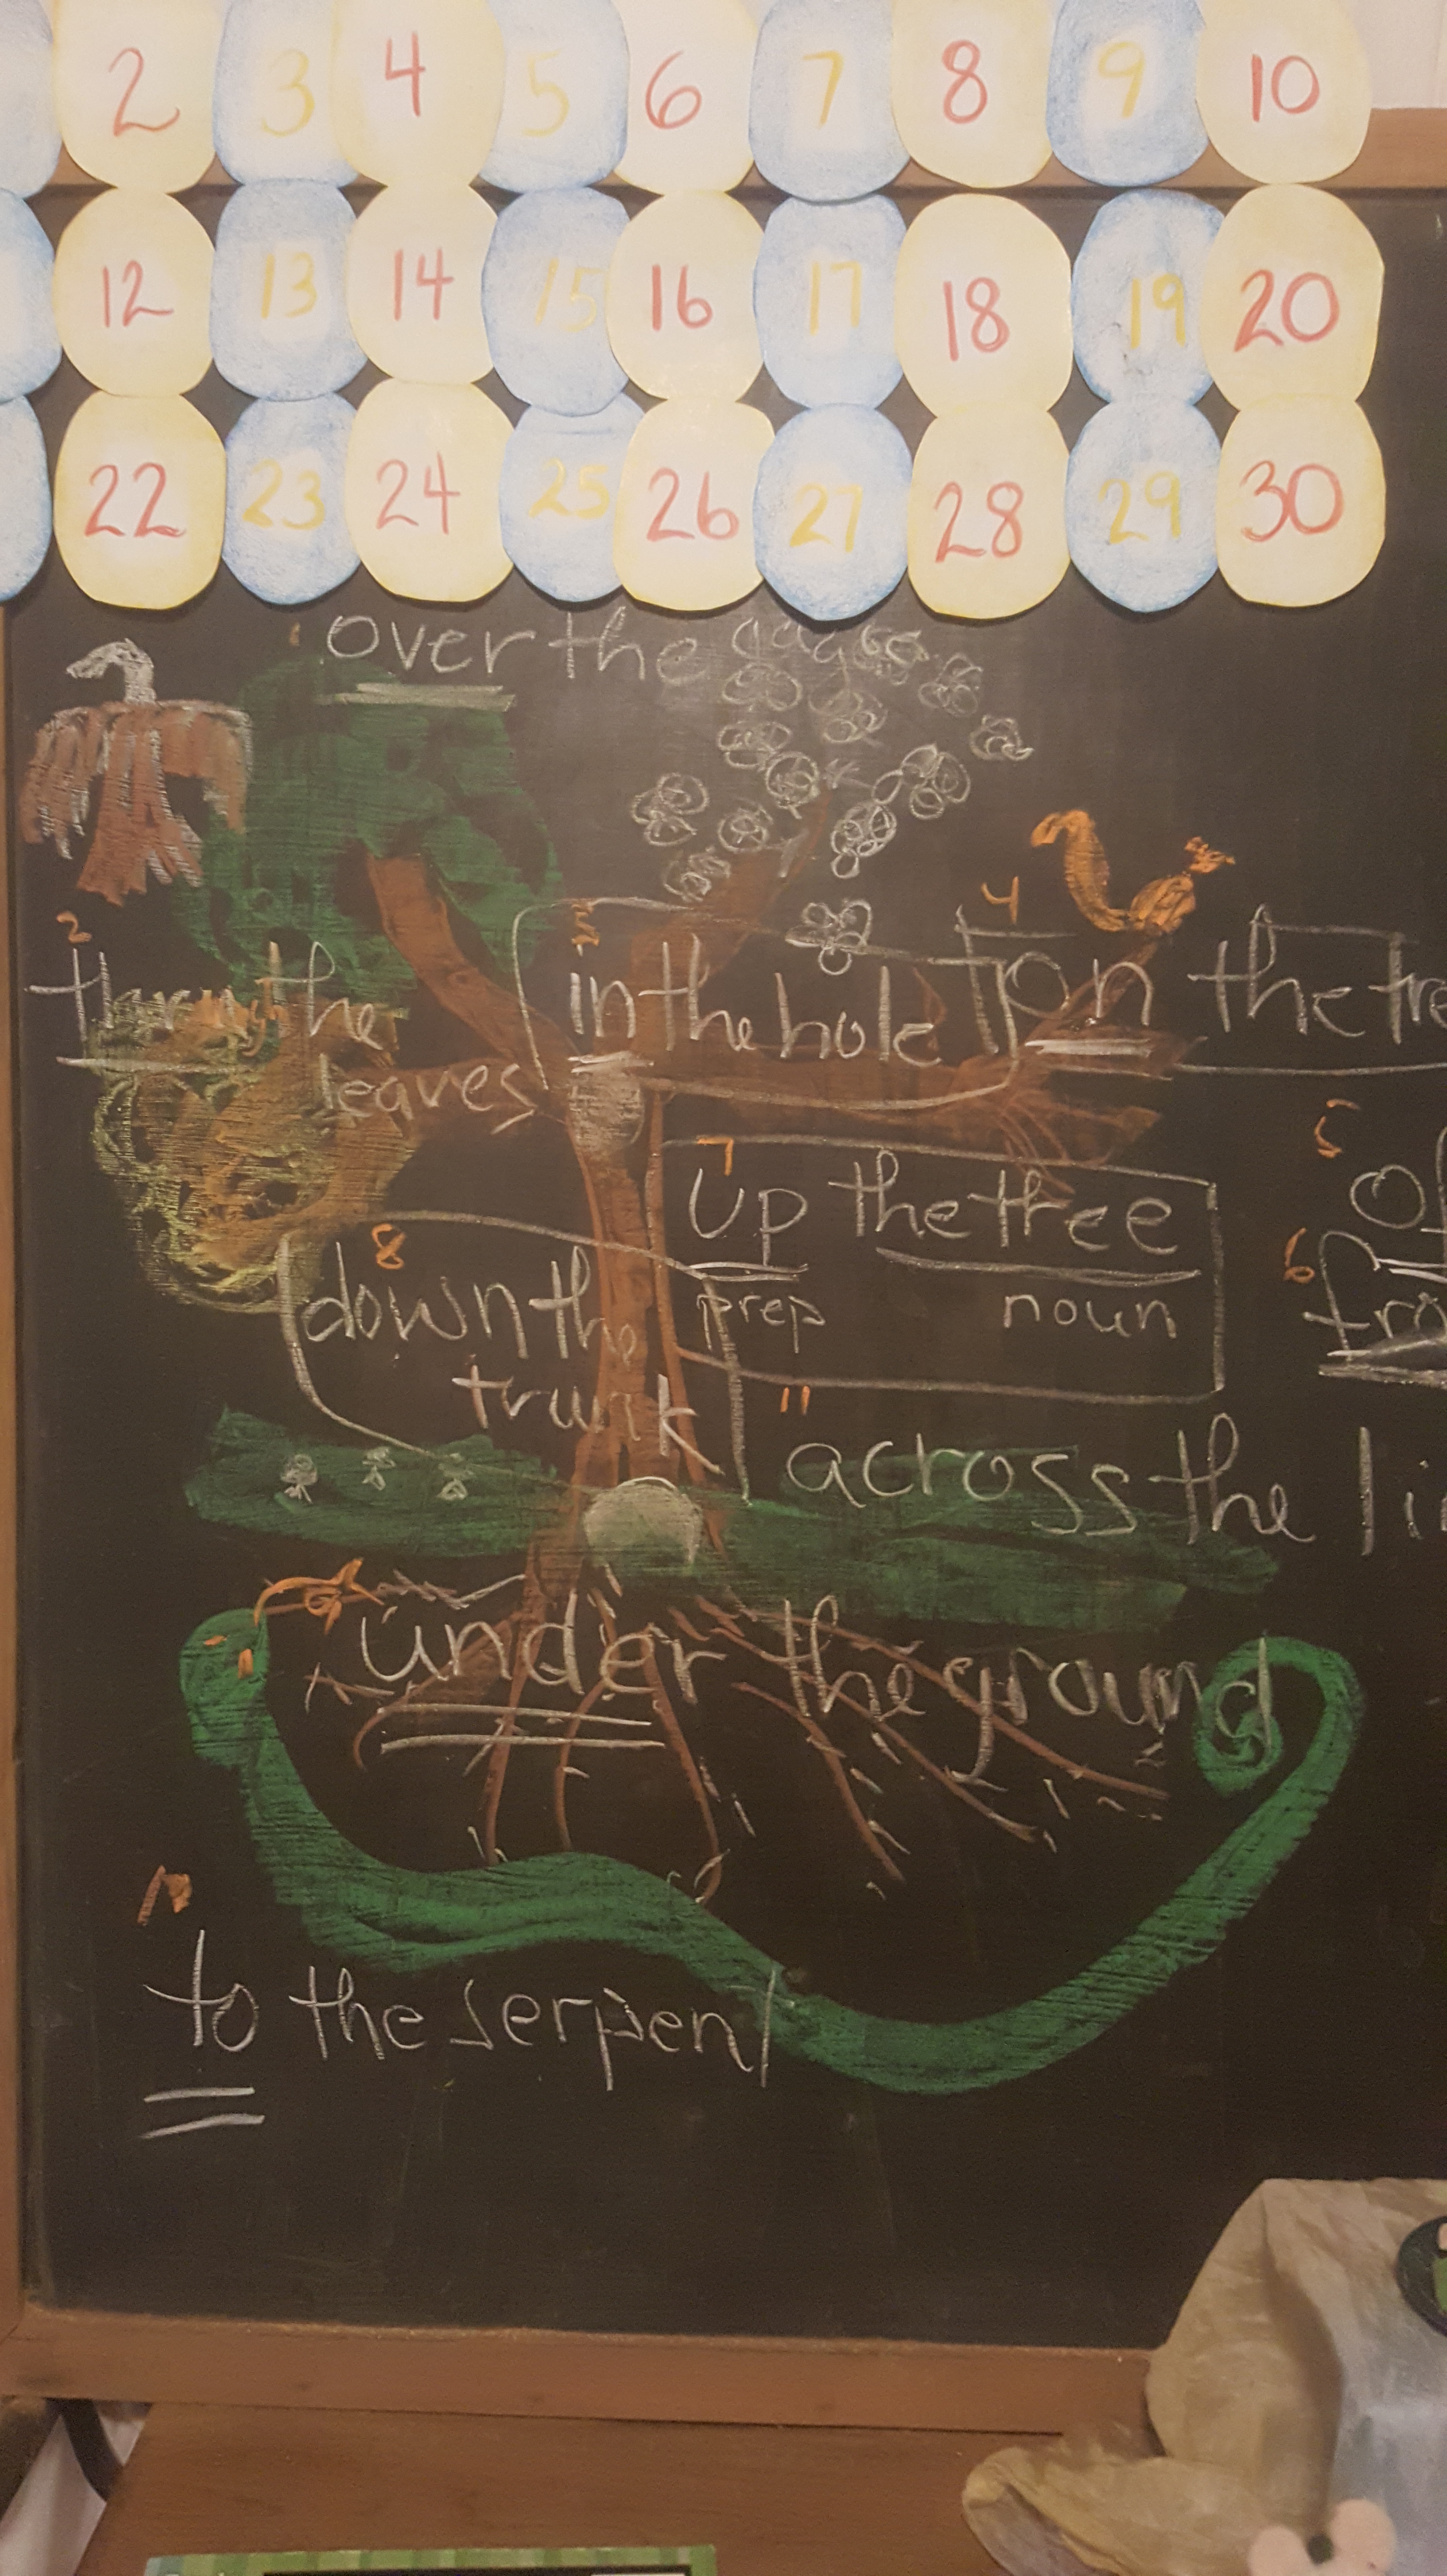 2 3 4 5 6 7 8 9 10
12 13 14 15 16 17 18 19 20
22 23 24 25 26 27 28 29 30
1 over the
2
the
leaves
3
in the hole
4
on the tre
5
Of
6
fro
7
up the tree
prep noun
8
down the
trunk
11
across the li
under the ground
10
to the serpent